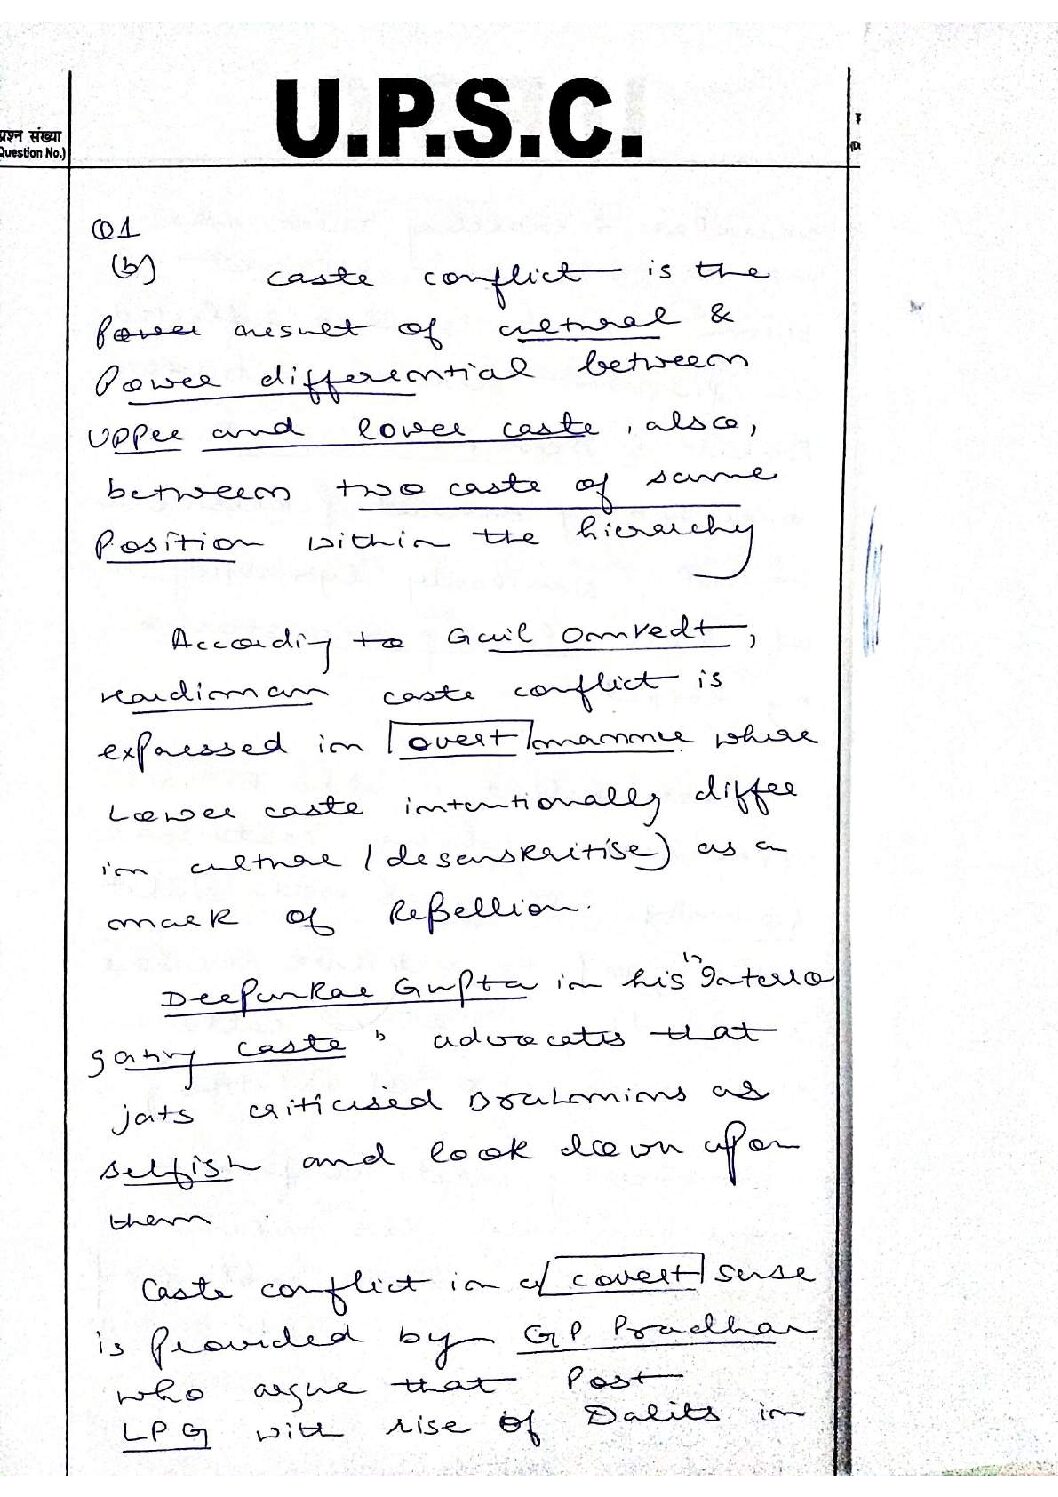 U.P.S.C.
प्रश्न संख्या
Question No.)
Q1
(b) caste conflict is the
result of cultural &
Power differential between
upper and lower caste, also,
between two caste of same
Position within the hierarchy
According to Gail Omvedt,
caste conflict is
expressed in overt manner where
Lower caste intentionally differ
in culture (desanskritise) as a
mark of Rebellion.
Deepankar Gupta in his "Interro
gating caste" advocates that
jats criticised Brahmins as
selfish and look down upon
them
Caste conflict in a covert sense
is provided by GP Pradhan
who argue that Post
LPG with rise of Dalits in